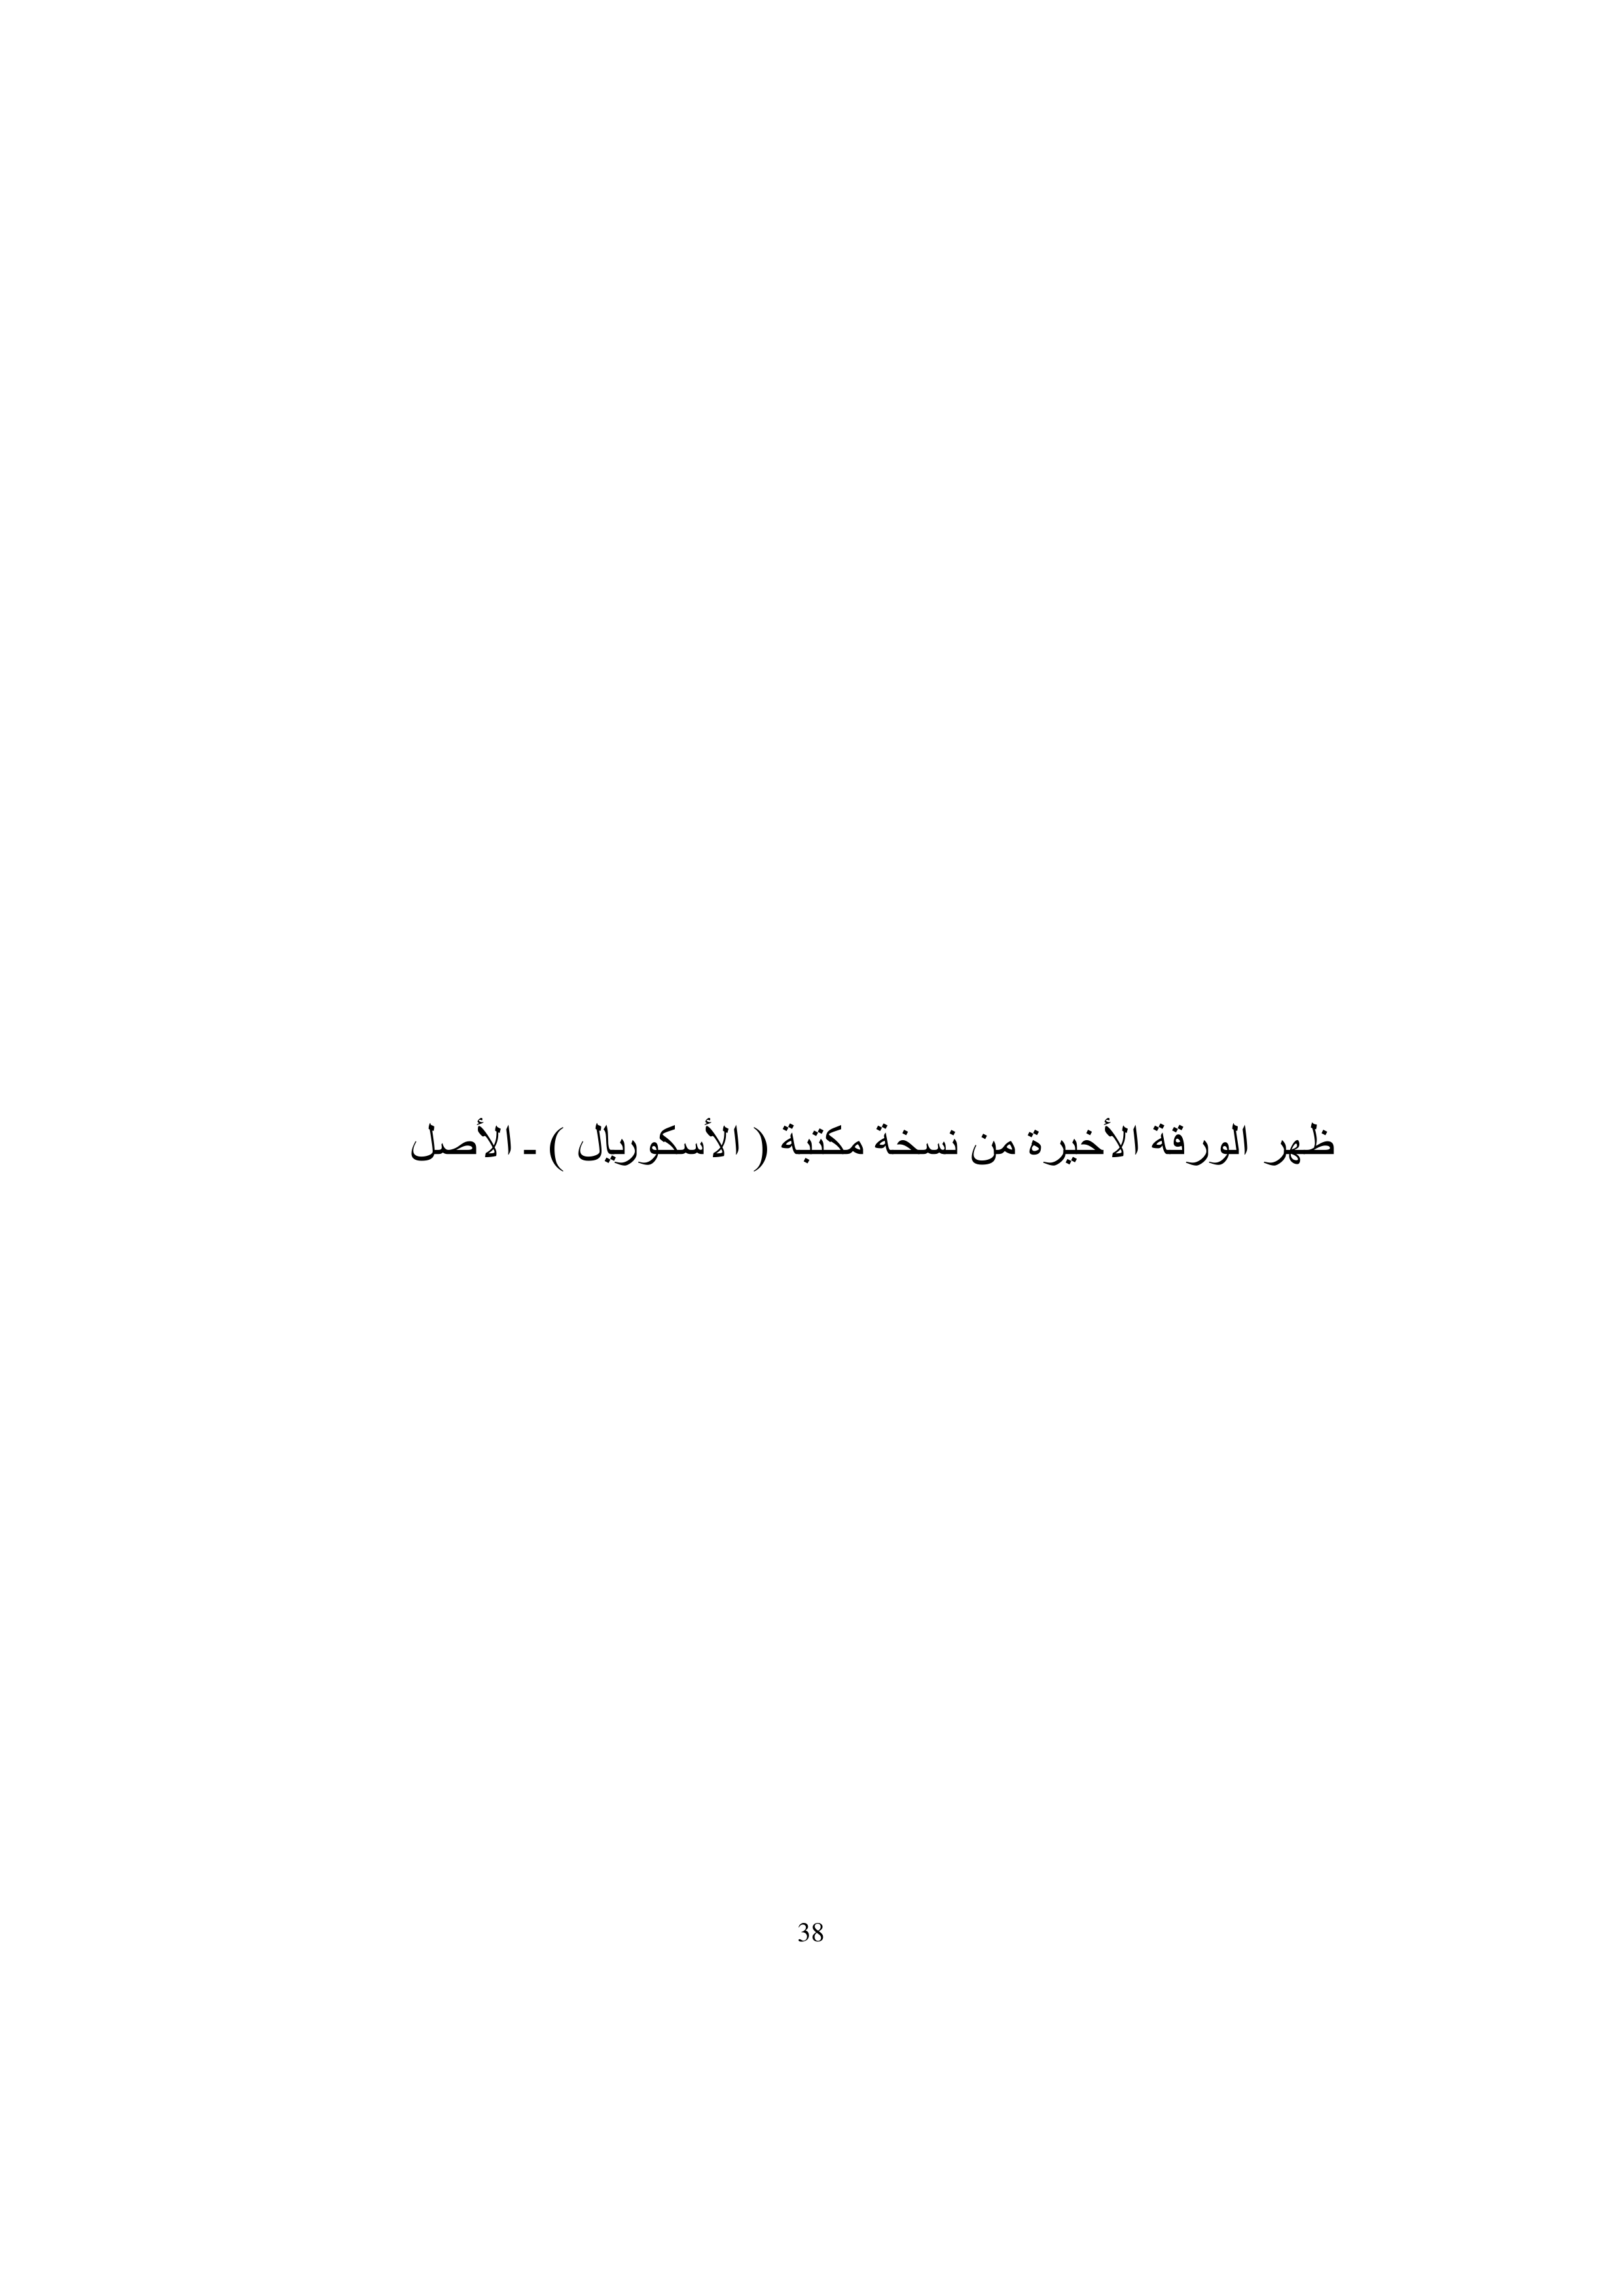 ظهر الورقة الأخيرة من نسخة مكتبة ( الأسكوريال ) - الأصل
38